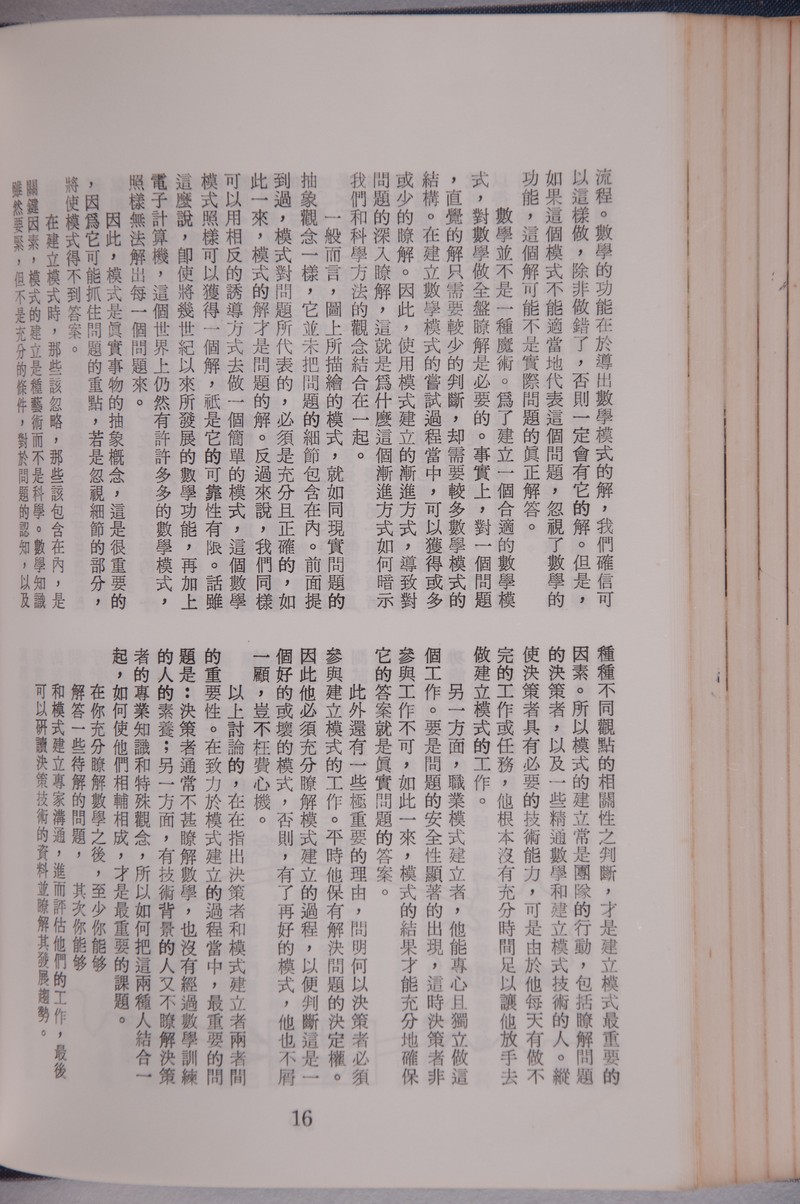 流程。數學的功能在於導出數學模式的解，我們確信可
以這樣做，除非做錯了，否則一定會有它的解。但是，
如果這個模式不能適當地代表這個問題，忽視了數學的
功能，這個解可能不是實際問題的眞正解答。
數學並不是一種魔術。爲了建立一個合適的數學模
式，對數學做全盤瞭解是必要的。事實上，對一個問題
，直覺的解只需要較少的判斷，却需要較多數學模式的
結構。在建立數學模式的嘗試過程當中，可以獲得或多
或少的瞭解。因此，使用模式建立的漸進方式，導致對
問題的深入瞭解，這就是爲什麼這個漸進方式如何暗示
我們和科學方法的觀念結合在一起。
一般而言，圖上所描繪的模式，就如同現實問題的
抽象觀念一樣，它並未把問題的細節包含在內。前面提
到過，模式對問題所代表的，必須是充分且正確的，如
此一來，模式的解才是問題的解。反過來說，我們同樣
可以用相反的誘導方式去做一個簡單的模式，這個數學
模式照樣可以獲得一個解，祇是它的可靠性有限。話雖
這麼說，卽使將幾世紀以來所發展的數學功能，再加上
電子計算機，這個世界上仍然有許許多多的數學模式，
照樣無法解出每一個問題來。
因此，模式是眞實事物的抽象概念，這是很重要的
，因爲它可能抓住問題的重點，若是忽視細節的部分，
將使模式得不到答案。
在建立模式時，那些該忽略，那些該包含在內，是
關鍵因素，模式的建立是種藝術而不是科學。數學知識
雖然要緊，但不是充分的條件，對於問題的認知，以及
種種不同觀點的相關性之判斷，才是建立模式最重要的
因素。所以模式的建立常是團隊的行動，包括瞭解問題
的決策者，以及一些精通數學和建立模式技術的人。縱
使決策者具有必要的技術能力，可是由於他每天有做不
完的工作或任務，他根本沒有充分時間足以讓他放手去
做建立模式的工作。
另一方面，職業模式建立者，他能專心且獨立做這
個工作。要是問題的安全性顯著的出現，這時決策者非
參與工作不可，如此一來，模式的結果才能充分地確保
它的答案就是眞實問題的答案。
此外還有一些極重要的理由，闡明何以決策者必須
參與建立模式的工作。平時他保有解決問題的決定權。
因此他必須充分瞭解模式建立的過程，以便判斷這是一
個好的或壞的模式，否則，有了再好的模式，他也不屑
一顧，豈不枉費心機。
以上討論的，在在指出決策者和模式建立者兩者間
的重要性。在致力於模式建立的過程當中，最重要的問
題是：決策者通常不甚瞭解數學，也沒有經過數學訓練
的人的素養；另一方面，有技術背景的人又不瞭解決策
者的專業知識和特殊觀念，所以如何把這兩種人結合一
起，如何使他們相輔相成，才是最重要的課題。
在你充分瞭解數學之後，至少你能够
解答一些待解的問題，其次你能够
和模式建立專家溝通，進而評估他們的工作，最後
可以研讀決策技術的資料並瞭解其發展趨勢。
16